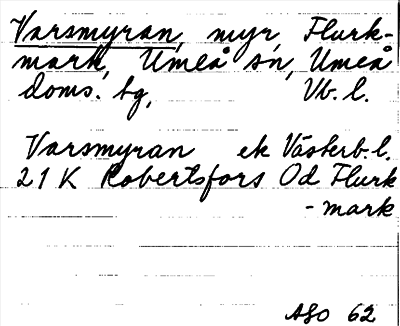 Varsmyran, myr, Flurk-
mark, Umeå sn, Umeå
doms. bg, Vb. l.
Varsmyran ek Västerb. l.
21 K Robertsfors Od Flurk
- mark
ASO 62